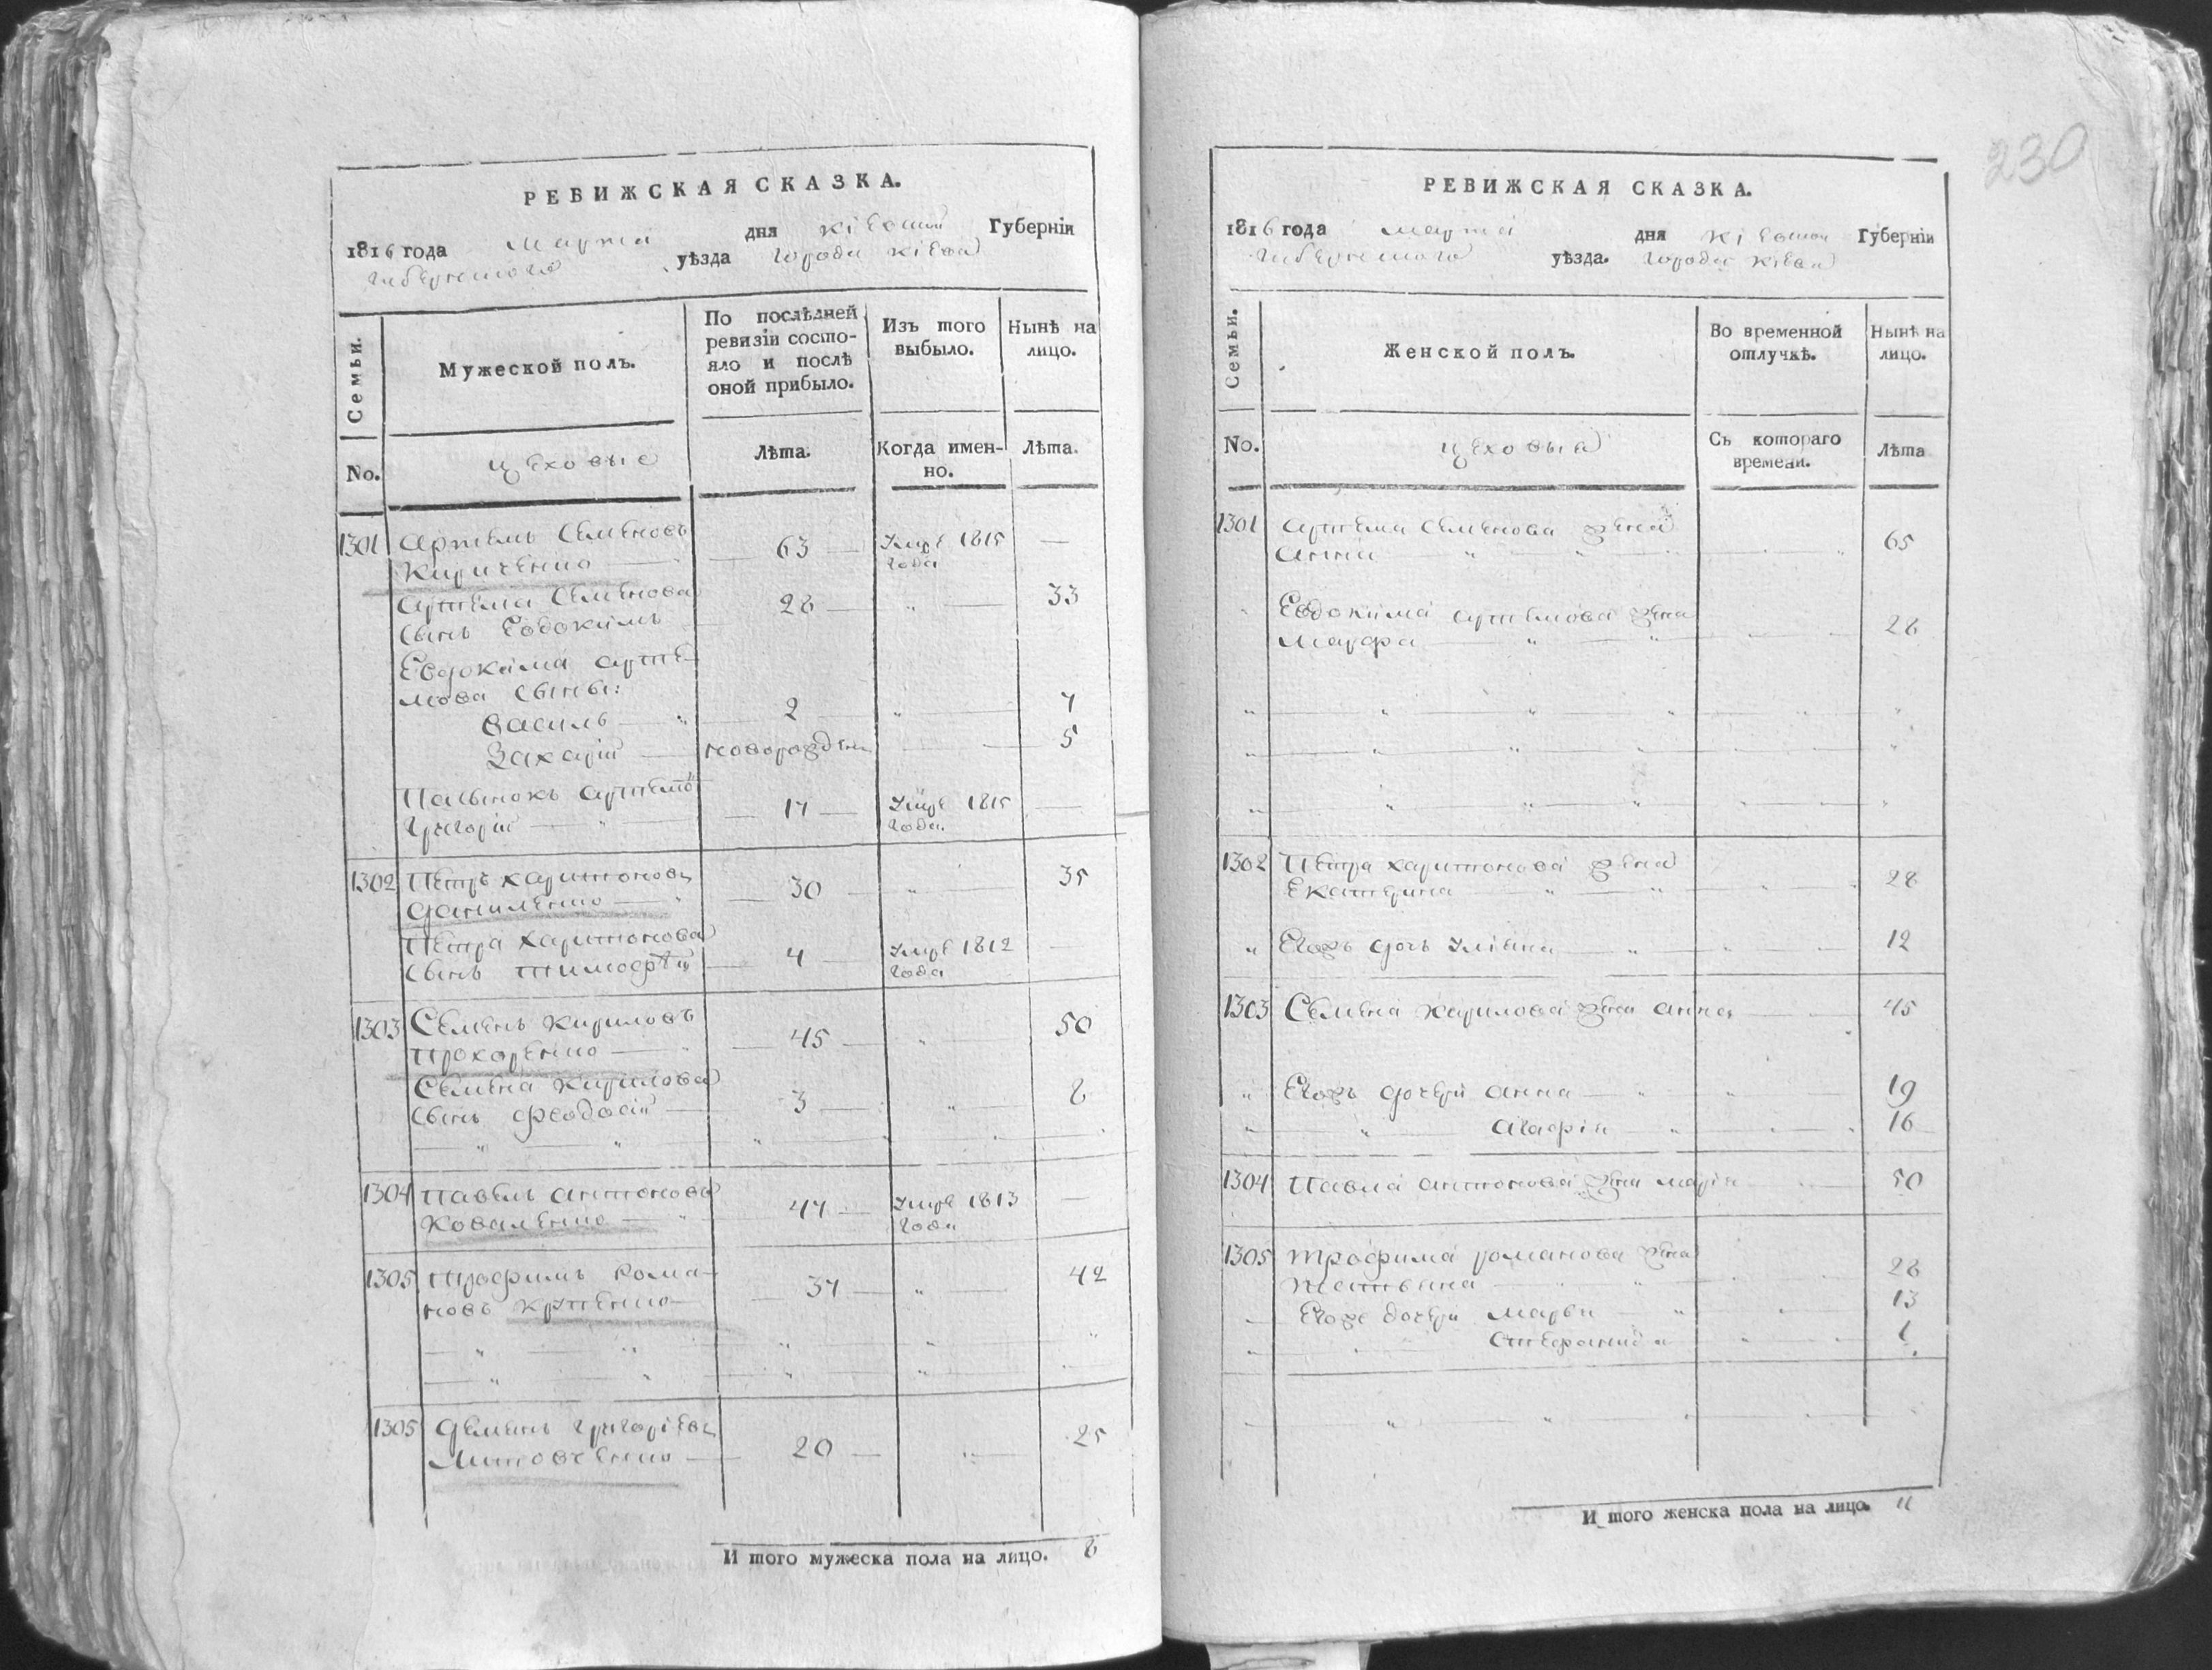 РЕВИЖСКАЯ СКАЗКА.
1816 года Марта дня Кіевской Губерніи
Губернскаго уѣзда Города Кіева
Семьи.
Мужеской полъ.
По послѣдней
ревизіи состо-
яло и послѣ
оной прибыло.
Изъ того
выбыло.
Нынѣ на
лицо.
No.
Цеховые
Лѣта.
Когда имен-
но.
Лѣта.
1301 Артемъ Семеновъ
Кириченко 63 Умре 1815 года —
Артема Семенова
сынъ Евдокимъ 28 33
Евдокима Арте-
мова сыны:
Василь 2 7
Захарій новорожден 5
Пасынокъ Артема
Григорій 17 Умре 1815 года. —
1302 Петръ Харитоновъ
Даниленко 30 35
Петра Харитонова
сынъ Тимофѣй 4 Умре 1812 года —
1303 Семенъ Кириловъ
Прохоренко 45 50
Семена Кирилова
сынъ Феодосій 3 8
1304 Павелъ Антоновъ
Коваленко 47 Умре 1813 года —
1305 Трофимъ Рома-
новъ 37 42
1305 Деменъ Григоріевъ
20 25
И того мужеска пола на лицо. 8
230
РЕВИЖСКАЯ СКАЗКА.
1816 года Марта дня Кіевской Губерніи
Губернскаго уѣзда. Города Кіева
Семьи.
Женской полъ.
Во временной
отлучкѣ.
Нынѣ на
лицо.
No.
Цеховыя
Съ котораго
времени.
Лѣта
1301 Артема Семенова жена
Анна 65
Евдокима Артемова жена
Марфа 28
1302 Петра Харитонова жена
Екатерина 28
Егожъ дочь Уліяна 12
1303 Семена Кирилова жена Анна 45
Егожъ дочери Анна 19
Агафія 16
1304 Павла Антонова жена Марія 50
1305 Трофима Романова жена
Татьяна 28
Егоже дочери Марья 13
Стефанида 1
И того женска пола на лицо. 11